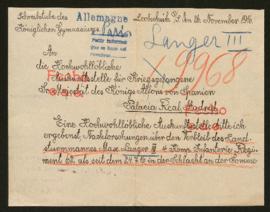 Schreibstube des
Königlichen Gymnasiums
Allemagne
Leobschütz O/S. den 16. November 1916.
Langer III
19968
An
die Hochwohllöbliche
Auskunftsstelle für Kriegsgefangene
Sr. Majestät des Königs Alfons von Spanien
Palacio Real Madrid
Eine Hochwohllöbliche Auskunftsstelle bitte ich
ergebenst Nachforschungen über den Verbleib des Land-
sturmmannes Max Langer II 4. Komp. Infanterie-
Regiment 62. als seit dem 24.7.16 in der Schlacht an der Somme